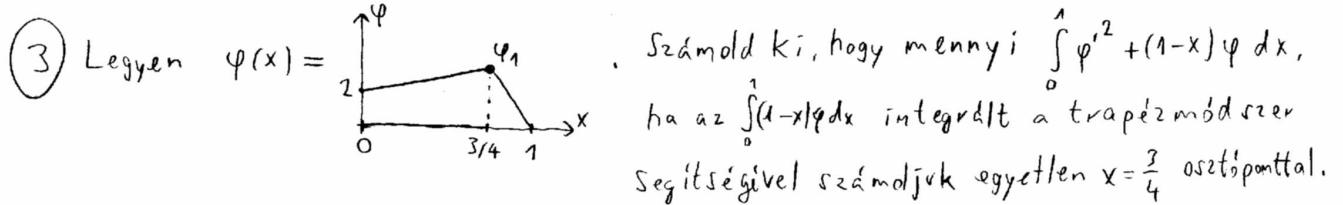 3 Legyen φ(x) = φ φ₁ 2 0 3/4 1 x . Számold ki, hogy mennyi ∫₀¹ φ'² + (1-x) φ dx,
ha az ∫₀¹ (1-x)φdx integrált a trapézmódszer
segítségivel számoljuk egyetlen x = 3/4 osztóponttal.